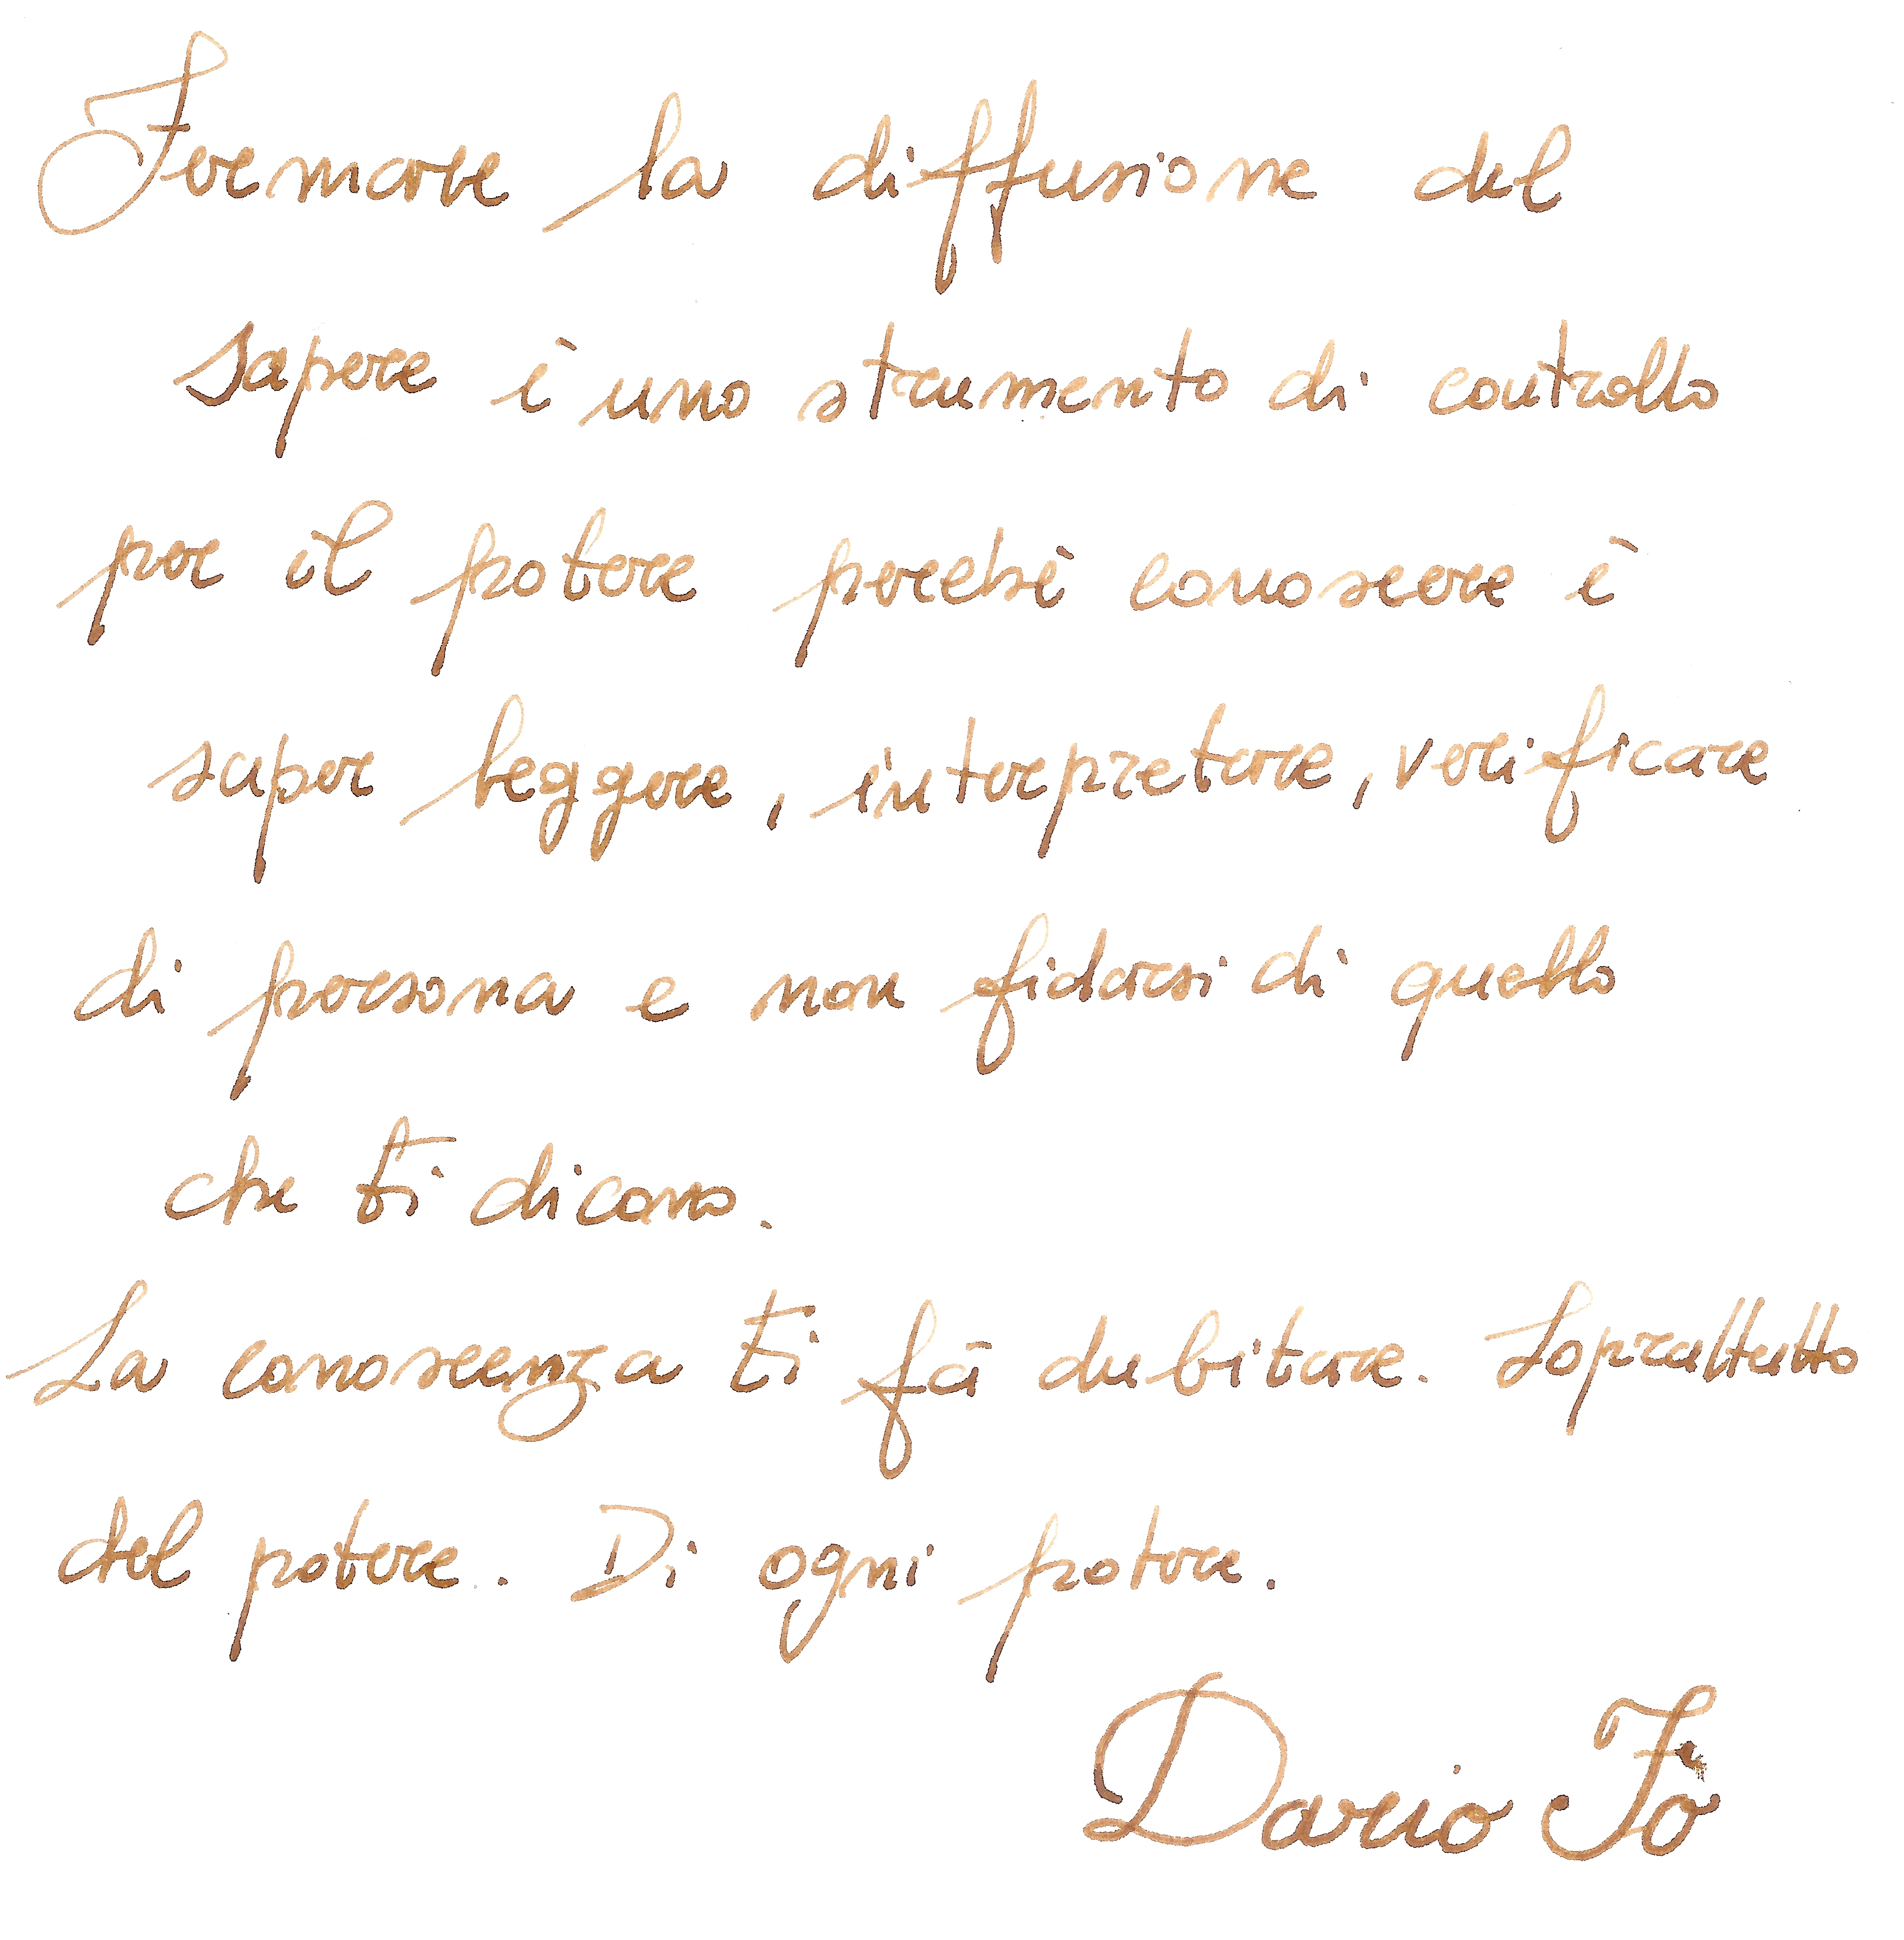 Fermare la diffusione del
sapere è uno strumento di controllo
per il potere perché conoscere è
saper leggere, interpretare, verificare
di persona e non fidarsi di quello
che ti dicono.
La conoscenza ti fà dubitare. Soprattutto
del potere. Di ogni potere.
Dario Fò